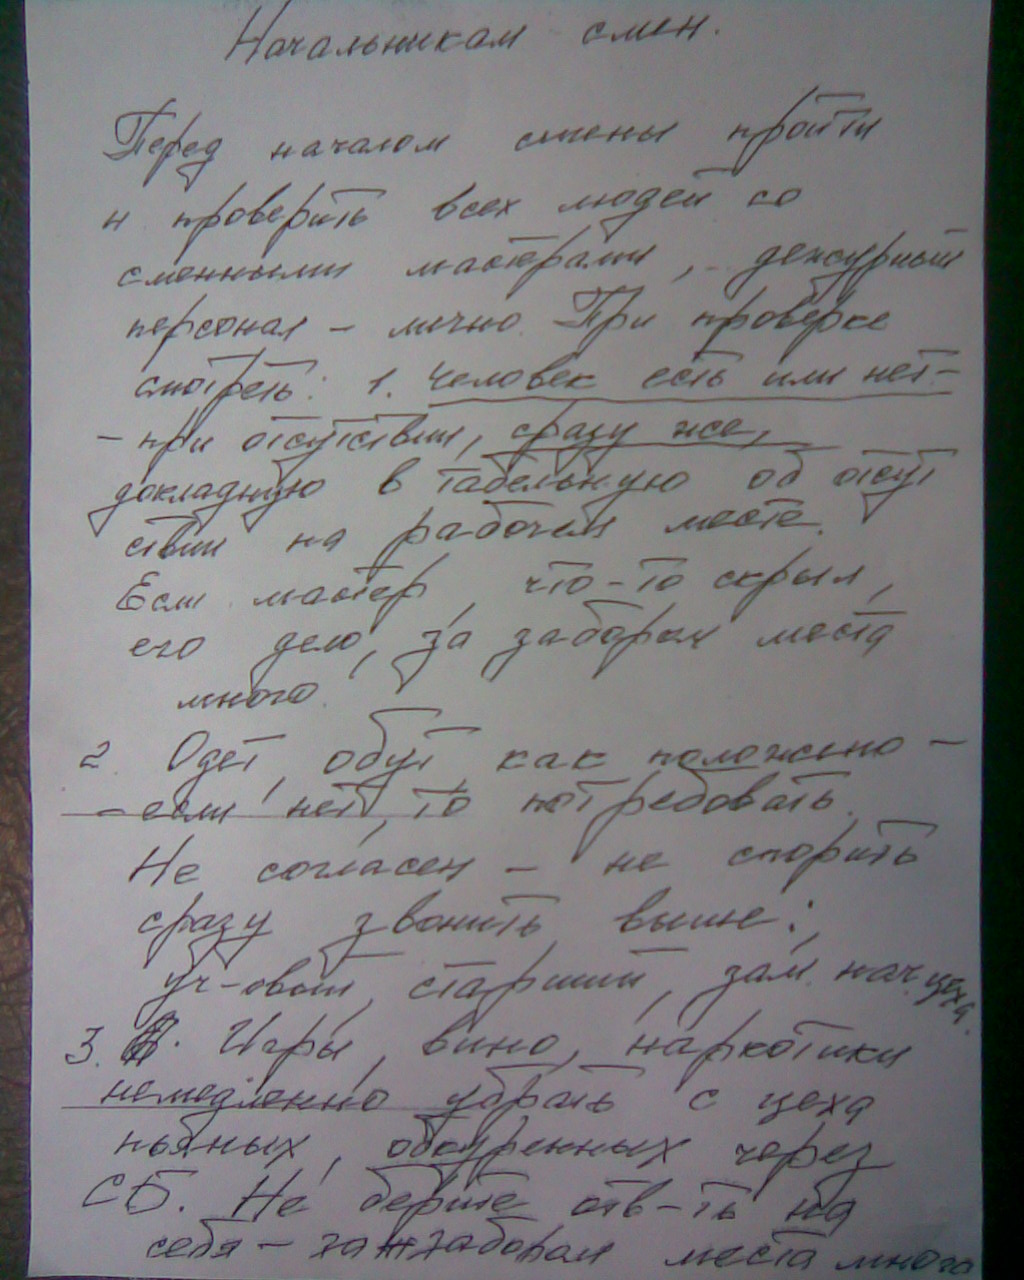 Начальникам смен.
Перед началом смены пройти
и проверить всех людей со
сменными мастерами, дежурный
персонал - лично. При проверке
смотреть: 1. Человек есть или нет-
- при отсутствии, сразу же,
докладную в табельную об отсут
ствии на рабочем месте.
Если мастер, что-то скрыл,
его дело, за забором места
много.
2 Одет, обут, как положено -
- если нет, то потребовать.
Не согласен - не спорить
сразу звонить выше:
уч-овый, старший, зам. нач. цеха.
3. Игры, вино, наркотики
немедленно убрать с цеха
пьяных, обкуренных через
СБ. Не берите отв-ть на
себя - за забором места много